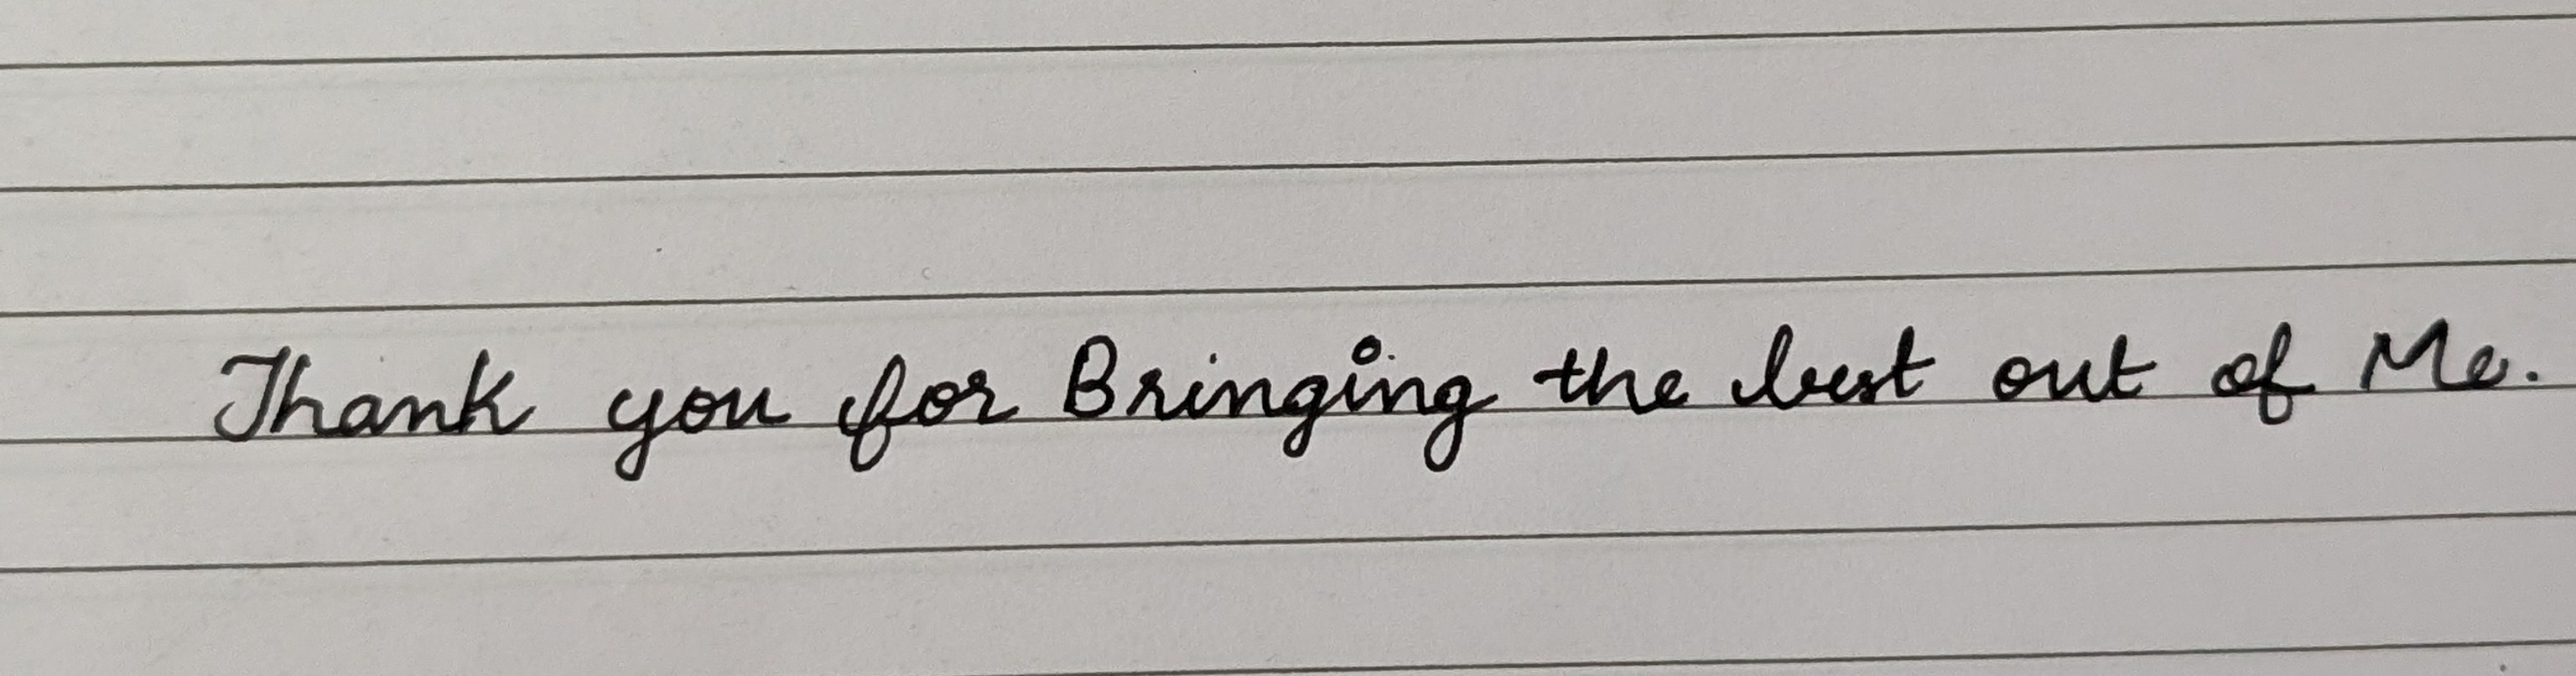 Thank you for Bringing the best out of Me.